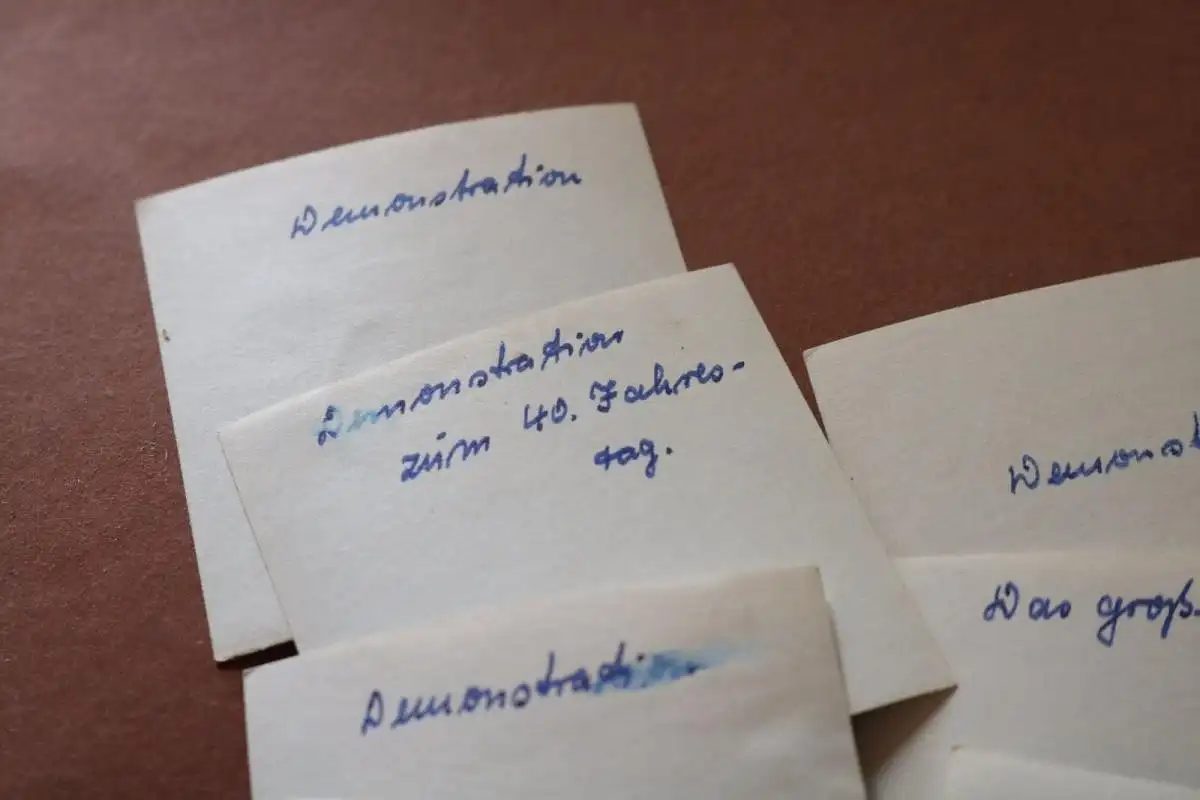 Demonstration
Demonstration
zum 40. Jahres-
tag.
Demonstration
Demonst
Das groß